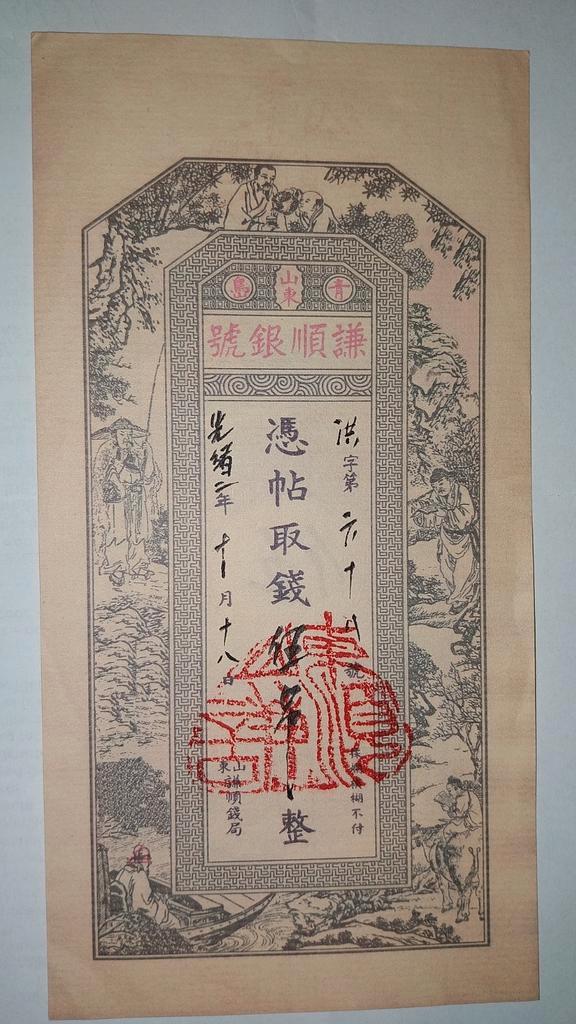 青 山東 島
謙順銀號
洪字第六十八號
憑帖取錢伍串整
失票模糊不付
光緒二年十一月十八日
山東謙順錢局